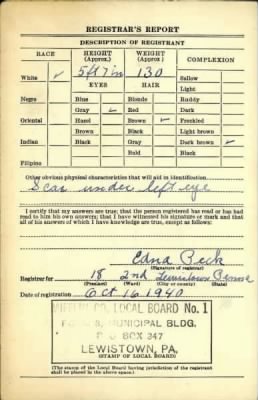 REGISTRAR'S REPORT
DESCRIPTION OF REGISTRANT
RACE HEIGHT (Approx.) WEIGHT (Approx.) COMPLEXION
White ✓ 5ft 7in 130 Sallow
EYES HAIR Light
Negro Blue Blonde Ruddy
Gray ✓ Red Dark
Oriental Hazel Brown ✓ Freckled
Brown Black Light brown
Indian Black Gray Dark brown ✓
Bald Black
Filipino
Other obvious physical characteristics that will aid in identification
Scar under left eye
I certify that my answers are true; that the person registered has read or has had
read to him his own answers; that I have witnessed his signature or mark and that
all of his answers of which I have knowledge are true, except as follows:
Edna Peck
(Signature of registrar)
Registrar for 18 2nd Lewistown Penna
(Precinct) (Ward) (City or county) (State)
Date of registration Oct 16 1940
MIFFLIN CO. LOCAL BOARD No. 1
MUNICIPAL BLDG.
P O BOX 347
LEWISTOWN, PA.
(STAMP OF LOCAL BOARD)
(The stamp of the Local Board having jurisdiction of the registrant
shall be placed in the above space.)